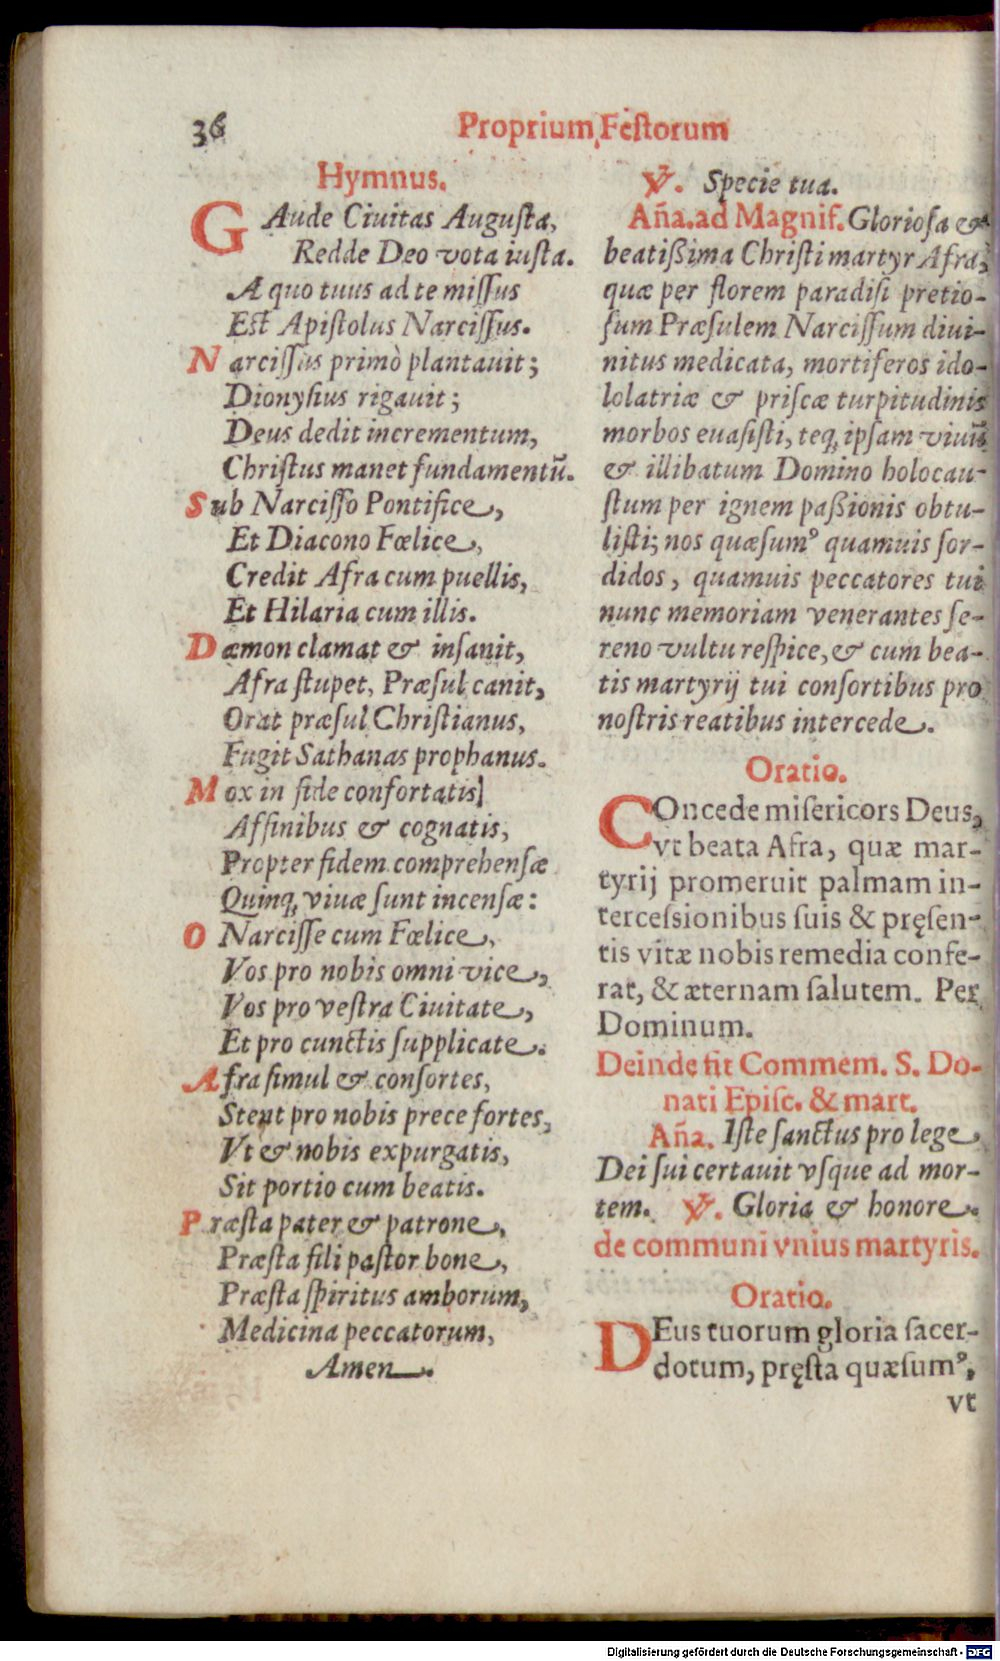 36
Proprium Festorum
Hymnus.
GAude Ciuitas Augusta,
Redde Deo vota iusta.
A quo tuus ad te missus
Est Apistolus Narcissus.
Narcissus primò plantauit;
Dionysius rigauit;
Deus dedit incrementum,
Christus manet fundamentū.
Sub Narcisso Pontifice,
Et Diacono Fœlice,
Credit Afra cum puellis,
Et Hilaria cum illis.
Dæmon clamat & insanit,
Afra stupet, Præsul canit,
Orat præsul Christianus,
Fugit Sathanas prophanus.
Mox in fide confortatis
Affinibus & cognatis,
Propter fidem comprehensæ
Quinq; viuæ sunt incensæ:
O Narcisse cum Fœlice,
Vos pro nobis omni vice,
Vos pro vestra Ciuitate,
Et pro cunctis supplicate.
Afra simul & consortes,
Stent pro nobis prece fortes,
Vt & nobis expurgatis,
Sit portio cum beatis.
Præsta pater & patrone,
Præsta fili pastor bone,
Præsta spiritus amborum,
Medicina peccatorum,
Amen.
℣. Specie tua.
Aña. ad Magnif. Gloriosa &
beatißima Christi martyr Afra,
quæ per florem paradisi pretio-
sum Præsulem Narcissum diui-
nitus medicata, mortiferos ido-
lolatriæ & priscæ turpitudinis
morbos euasisti, teq; ipsam viuū
& illibatum Domino holocau-
stum per ignem paßionis obtu-
listi; nos quæsumꝰ quamuis sor-
didos, quamuis peccatores tui
nunc memoriam venerantes se-
reno vultu respice, & cum bea-
tis martyrij tui consortibus pro
nostris reatibus intercede.
Oratio.
COncede misericors Deus,
vt beata Afra, quæ mar-
tyrij promeruit palmam in-
tercessionibus suis & pręsen-
tis vitæ nobis remedia confe-
rat, & æternam salutem. Per
Dominum.
Deinde fit Commem. S. Do-
nati Episc. & mart.
Aña. Iste sanctus pro lege
Dei sui certauit vsque ad mor-
tem. ℣. Gloria & honore.
de communi vnius martyris.
Oratio.
DEus tuorum gloria sacer-
dotum, pręsta quæsumꝰ,
vt
Digitalisierung gefördert durch die Deutsche Forschungsgemeinschaft - DFG